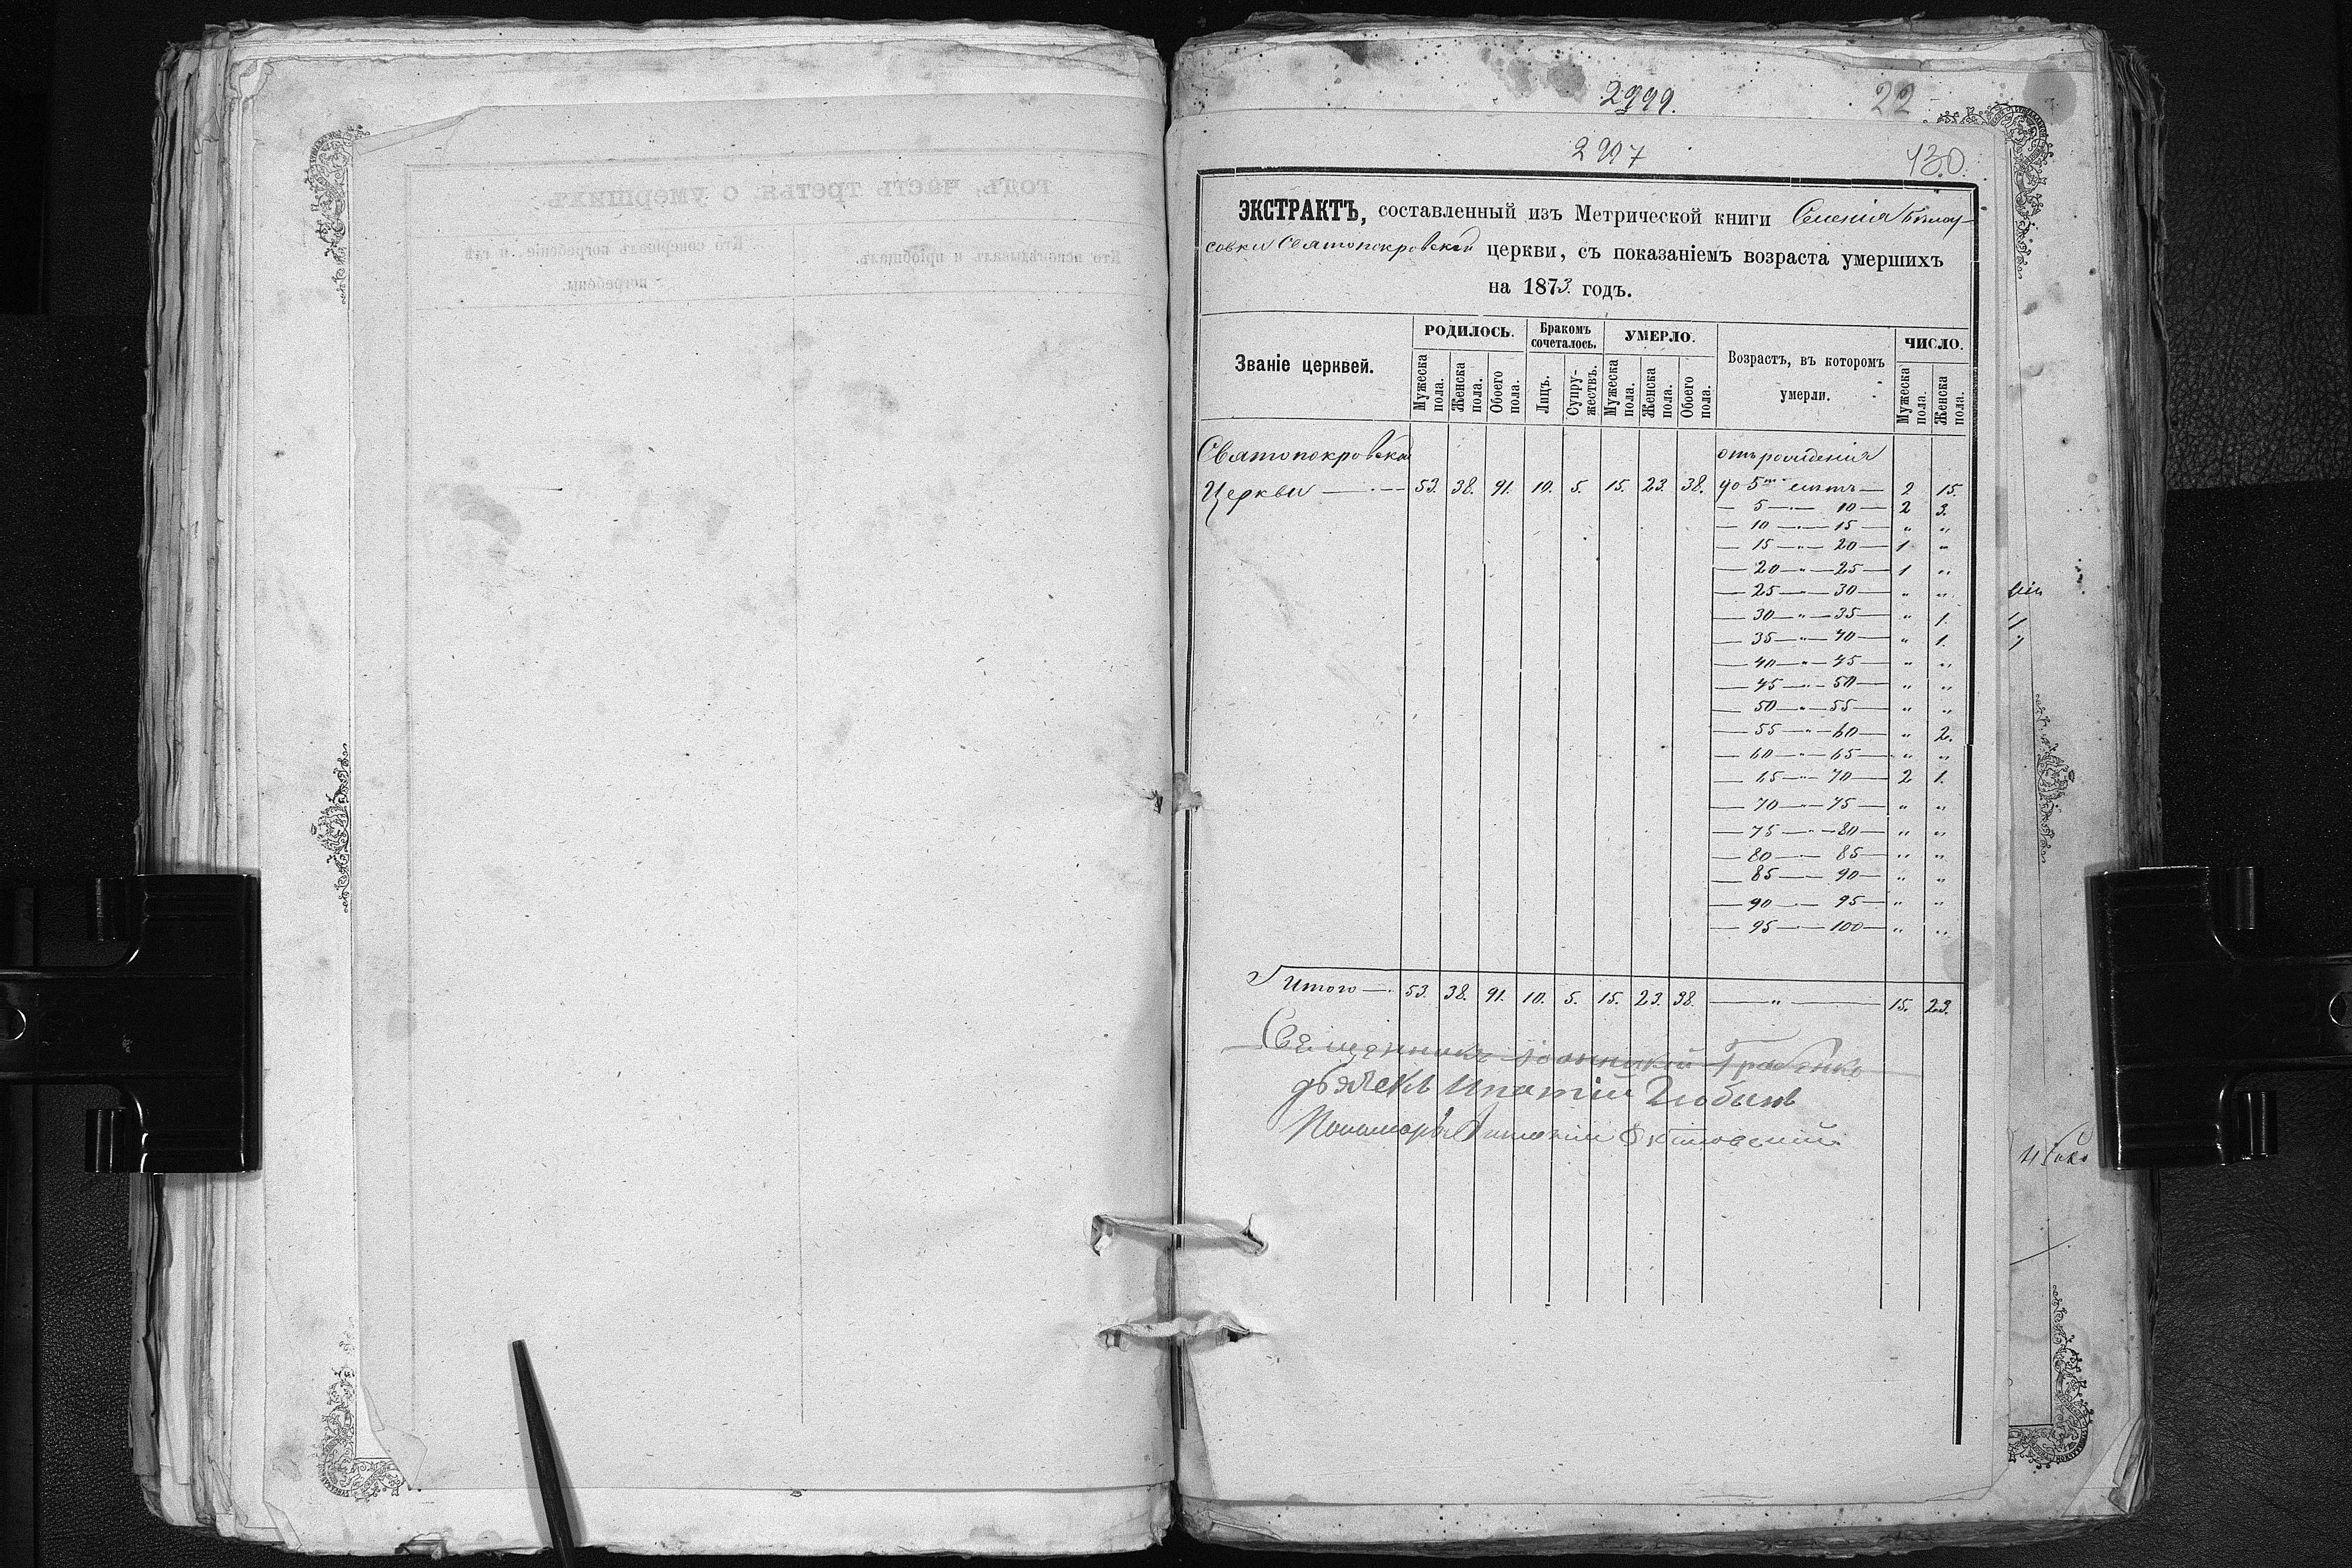 2999.
22
2997
130.
ЭКСТРАКТЪ, составленный изъ Метрической книги Селенія Билоу-
совки Святопокровской церкви, съ показаніемъ возраста умершихъ
на 1873. годъ.
Званіе церквей. РОДИЛОСЬ. Бракомъ сочеталось. УМЕРЛО. Возрастъ, въ которомъ умерли. ЧИСЛО.
Мужеска пола. Женска пола. Обоего пола. Лицъ. Супру-жествъ. Мужеска пола. Женска пола. Обоего пола. Мужеска пола. Женска пола.
Святопокровской отъ рожденія
Церкви — 53. 38. 91. 10. 5. 15. 23. 38. до 5ти лѣтъ — 2 15.
— 5 — 10 — 2 3.
— 10 — 15 — " "
— 15 — " — 20 — 1 "
— 20 — " — 25 — 1 "
— 25 — " — 30 — " "
— 30 — " — 35 — " 1.
— 35 — " — 40 — " 1.
— 40 — " — 45 — " "
— 45 — " — 50 — " "
— 50 — " — 55 — " "
— 55 — " — 60 — " 2.
— 60 — " — 65 — " "
— 65 — " — 70 — 2 1.
— 70 — " — 75 — " "
— 75 — " — 80 — " "
— 80 — 85 — " "
— 85 — 90 — " "
— 90 — 95 — " "
— 95 — 100 — " "
Итого — 53. 38. 91. 10. 5. 15. 23. 38. — " — 15. 23.
Священникъ Іоанникій
дьячекъ Ипатій
Пономарь
годъ, часть третья, о умершихъ.
Кто исповѣдывалъ и пріобщалъ.
Кто совершалъ погребеніе и гдѣ
погребены.